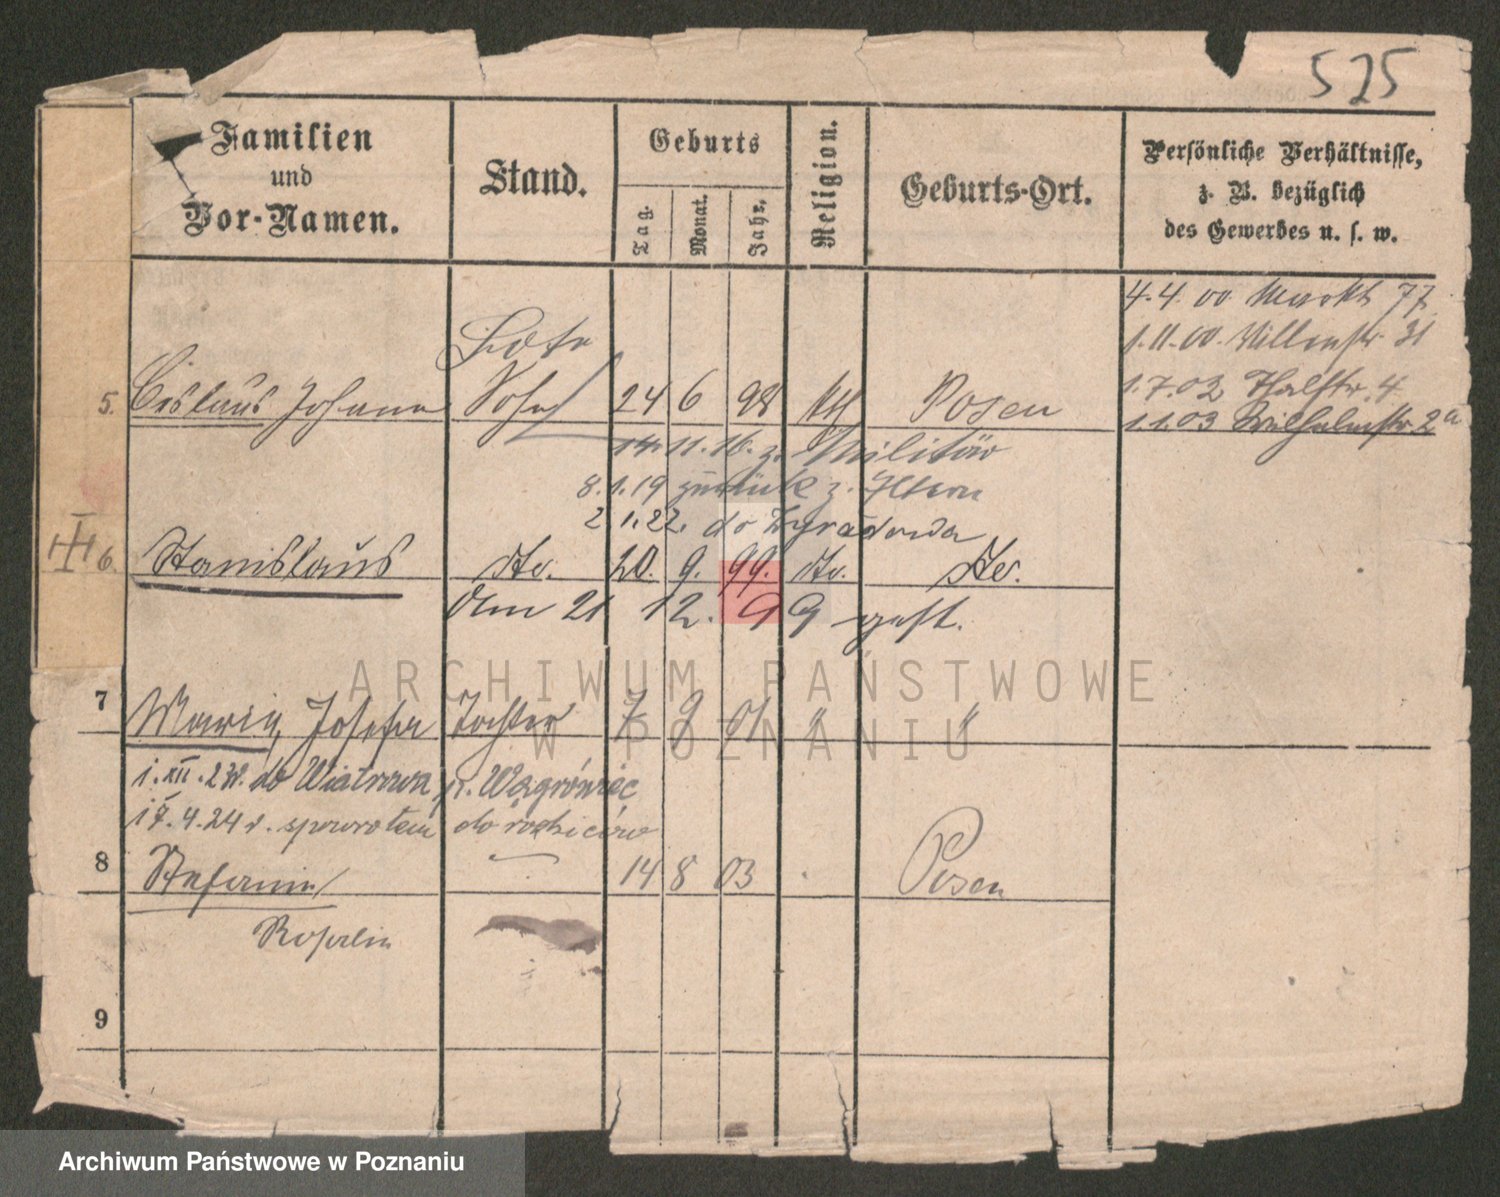 525
Familien und Vor-Namen.
Stand.
Geburts
Tag.
Monat.
Jahr.
Religion.
Geburts-Ort.
Persönliche Verhältnisse, z. B. bezüglich des Gewerbes u. s. w.
4.4.00 Markt 77
1.11.00. 31
1.7.02 4
1.1.03 Wilhelmstr. 2a
5. Johann Sohn 24 6 98 Kth Posen
14.11.16. z. Militär
8.1.19 zurück z. Eltern
2.1.22. do Żyradowa
6. Stanislaus dto. 20. 9. 99. dto. dto.
Am 21 12. 99 gest.
7 Maria, Josefa Tochter 7 9 01 " "
1.XII.23r. do Wiatrowa p. Wągrówiec
17.4.24 r. spowrotem do rodziców
8 14 8 03 Posen
Rosalia
9
ARCHIWUM PAŃSTWOWE
W POZNANIU
Archiwum Państwowe w Poznaniu